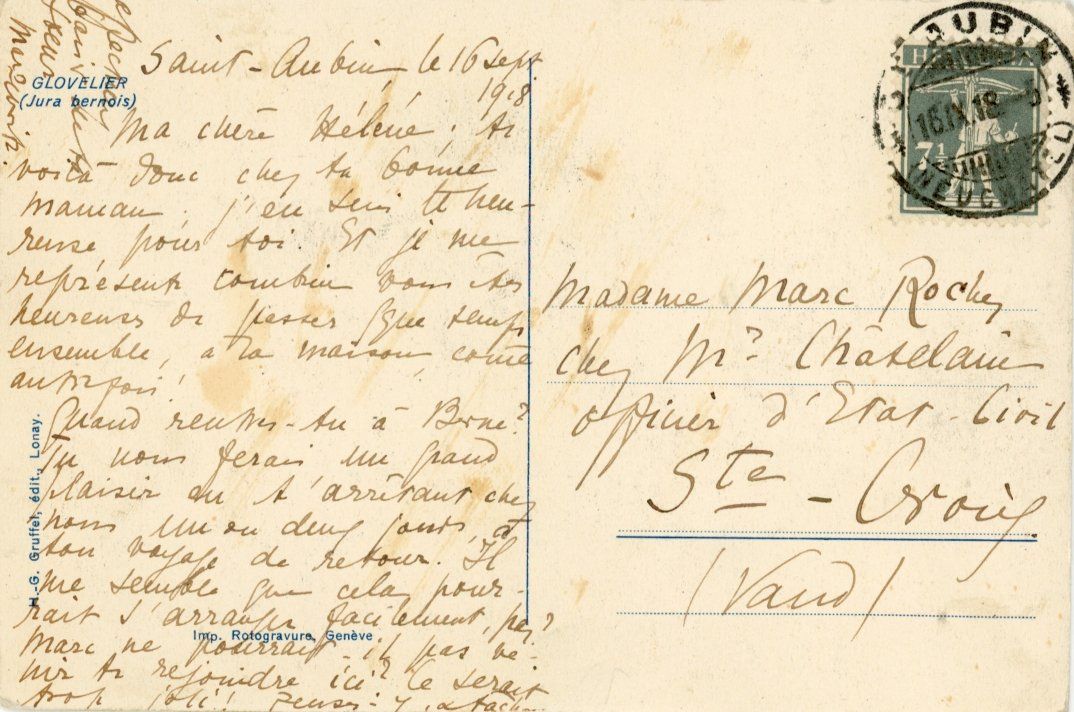 GLOVELIER
(Jura bernois)
Saint-Aubin le 16 sept
1918
Ma chère Hélène. Te
voilà donc chez ta bonne
maman. j'en suis heu-
reuse pour toi. Et je me
représente combien vous êtes
heureuses de passer qque temps
ensemble, à la maison, comme
autrefois!
Quand rentres-tu à Berne?
Tu nous ferais un grand
plaisir en t'arrêtant chez
nous un ou deux jours, à
ton voyage de retour. Il
me semble que cela pour-
rait s'arranger facilement, pas?
Marc ne pourrait-il pas ve-
nir te rejoindre ici? Ce serait
trop joli! Penses-y,
H.-G. Gruffel, édit., Lonay.
Imp. Rotogravure, Genève
AUBIN
NEUCHATEL
16.IX.18
HELVETIA
7½
Madame Marc Roches
chez Mr. Châtelain
officier d'Etat-Civil
Ste-Croix
(Vaud)